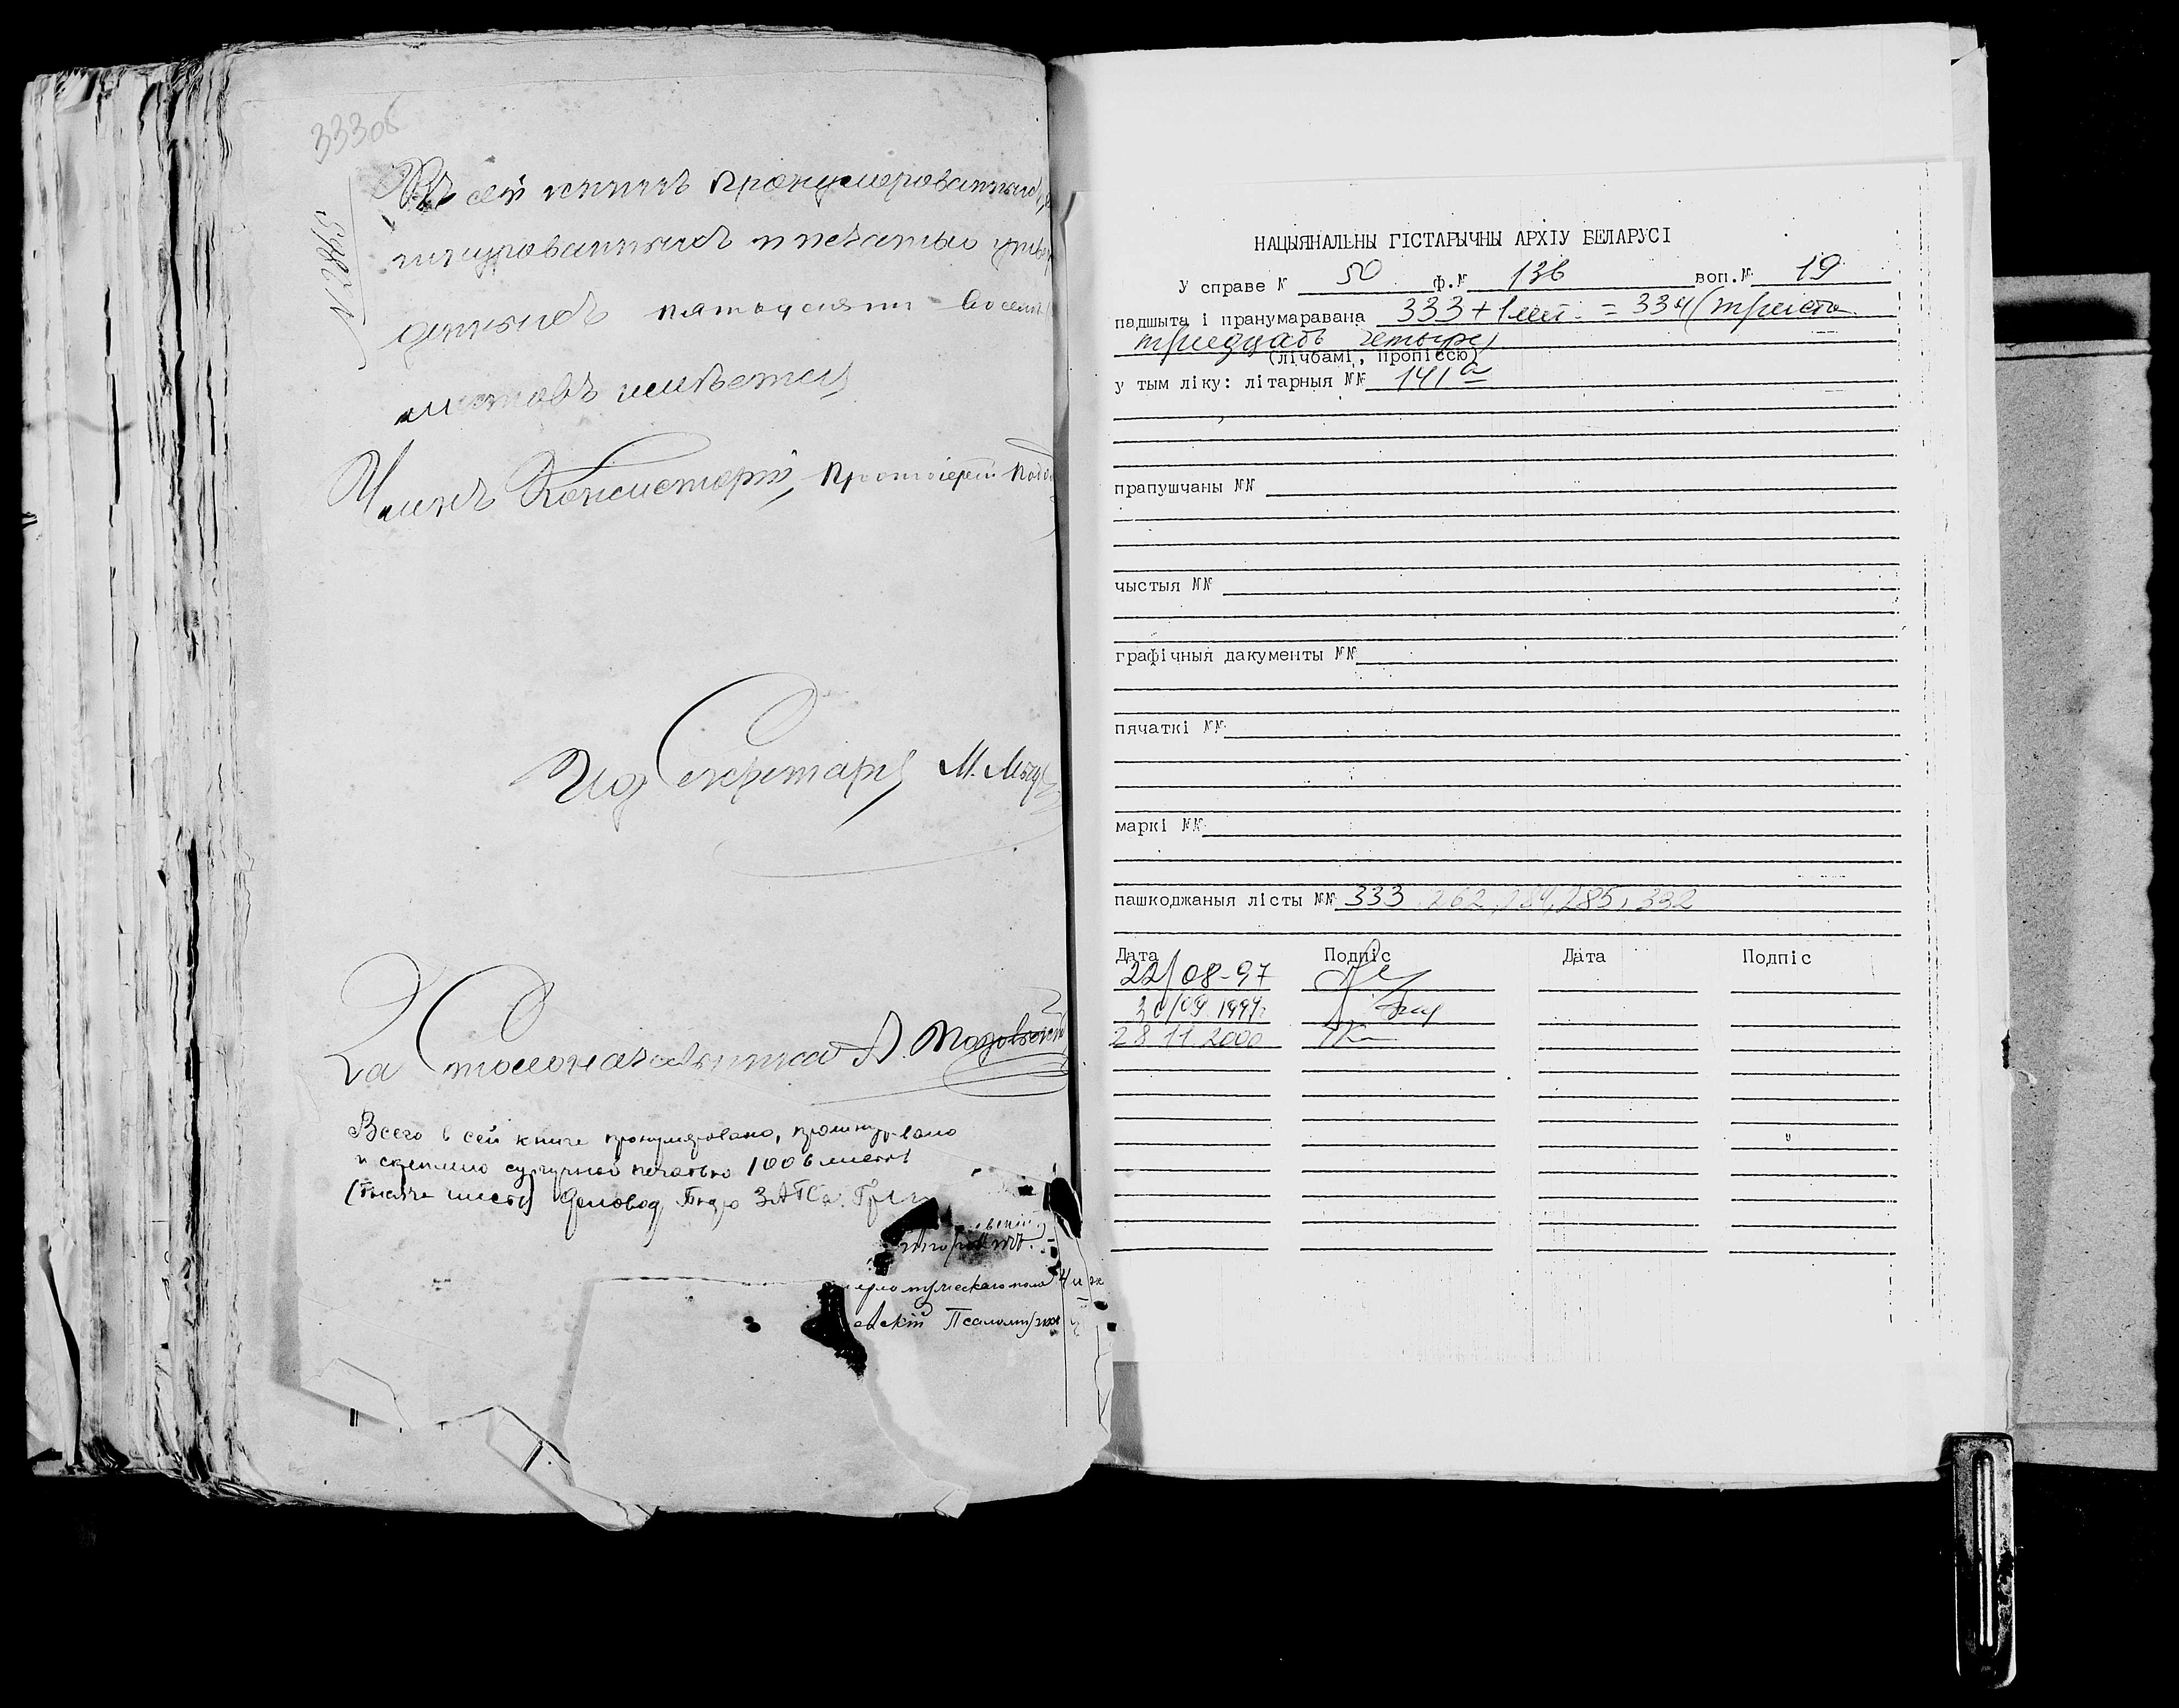 333об
№ 2865
Въ сей книгѣ пронумерованныхъ,
шнурованныхъ и печатью утвер
жденныхъ пятьдесятъ восемь
листовъ имѣется
Членъ Консисторіи, Протоіерей
Ид Секретаря М.
За Столоначальника А.
Всего в сей книге пронумеровано, прошнуровано
и скреплено сургучной печатью 1006 листов
(тысяча шесть) Деловод Бюро ЗАГСа
Псаломщик
НАЦЫЯНАЛЬНЫ ГІСТАРЫЧНЫ АРХІУ БЕЛАРУСІ
У справе № 50 ф.№ 136 воп.№ 19
падшыта і пранумаравана 333+1лит. = 334 (триста
тридцать четыре)
(лічбамі, пропіссю)
у тым ліку: літарныя №№ 141а
прапушчаны №№
чыстыя №№
графічныя дакументы №№
пячаткі №№
маркі №№
пашкоджаныя лісты №№ 333, 262, 284, 285, 332
Дата Подпіс Дата Подпіс
22/08-97
30/09 1997г
28.11.2000